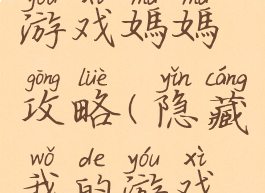 yóu xì mā mā
游戏媽媽
gōng lüè yǐn cáng
攻略(隐藏
wǒ de yóu xì
我的游戏